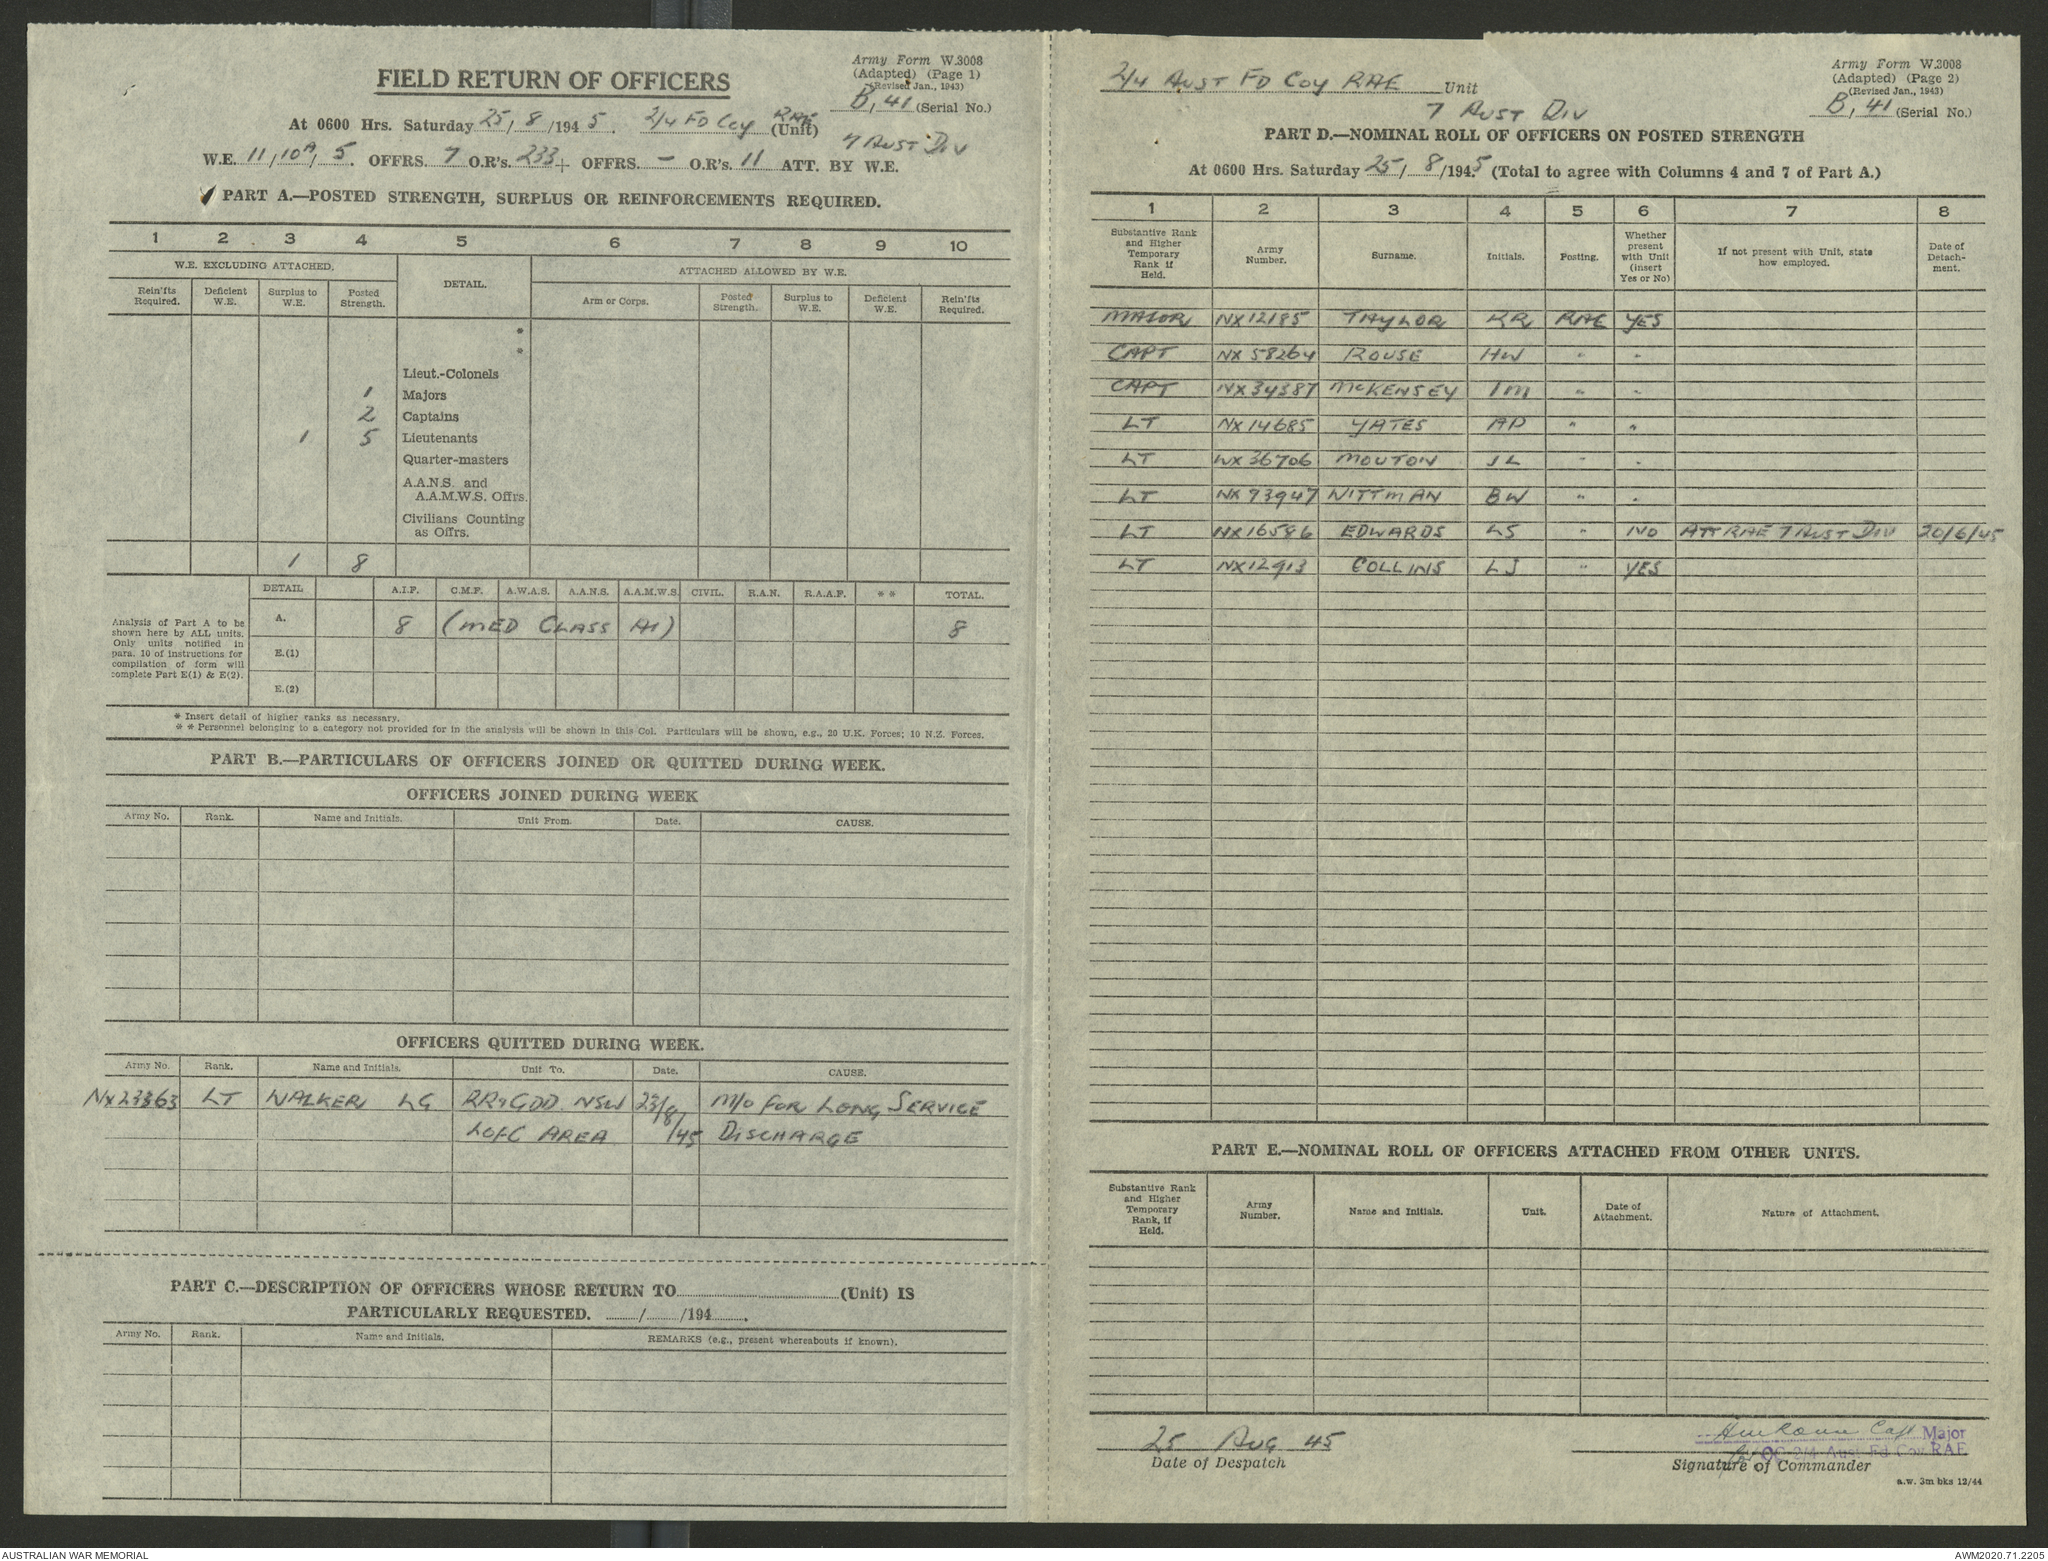 Army Form W.3008
(Adapted) (Page 1)
(Revised Jan., 1943)
B, 41 (Serial No.)
FIELD RETURN OF OFFICERS
At 0600 Hrs. Saturday 25/8/1945. 2/4 FD COY RAE (Unit)
7 AUST DIV
W.E. 11/10A/5. OFFRS. 7 O.R's. 233 + OFFRS. — O.R's. 11 ATT. BY W.E.
PART A.—POSTED STRENGTH, SURPLUS OR REINFORCEMENTS REQUIRED.
1 2 3 4 5 6 7 8 9 10
W.E. EXCLUDING ATTACHED. DETAIL. ATTACHED ALLOWED BY W.E.
Rein'fts Required. Deficient W.E. Surplus to W.E. Posted Strength. Arm or Corps. Posted Strength. Surplus to W.E. Deficient W.E. Rein'fts Required.
*
*
Lieut.-Colonels
1 Majors
2 Captains
1 5 Lieutenants
Quarter-masters
A.A.N.S. and
A.A.M.W.S. Offrs.
Civilians Counting
as Offrs.
1 8
DETAIL A.I.F. C.M.F. A.W.A.S. A.A.N.S. A.A.M.W.S. CIVIL. R.A.N. R.A.A.F. * * TOTAL.
Analysis of Part A to be
shown here by ALL units.
Only units notified in
para. 10 of instructions for
compilation of form will
complete Part E(1) & E(2).
A. 8 (MED CLASS A1) 8
E.(1)
E.(2)
* Insert detail of higher ranks as necessary.
* * Personnel belonging to a category not provided for in the analysis will be shown in this Col. Particulars will be shown, e.g., 20 U.K. Forces; 10 N.Z. Forces.
PART B.—PARTICULARS OF OFFICERS JOINED OR QUITTED DURING WEEK.
OFFICERS JOINED DURING WEEK
Army No. Rank. Name and Initials. Unit From. Date. CAUSE.
OFFICERS QUITTED DURING WEEK.
Army No. Rank. Name and Initials. Unit To. Date. CAUSE.
NX23363 LT WALKER LG RR&GDD NSW 23/8/ M/O FOR LONG SERVICE
LOFC AREA /45 DISCHARGE
PART C.—DESCRIPTION OF OFFICERS WHOSE RETURN TO (Unit) IS
PARTICULARLY REQUESTED. / /194 .
Army No. Rank. Name and Initials. REMARKS (e.g., present whereabouts if known).
Army Form W.3008
(Adapted) (Page 2)
(Revised Jan., 1943)
B, 41 (Serial No.)
2/4 AUST FD COY RAE Unit
7 AUST DIV
PART D.—NOMINAL ROLL OF OFFICERS ON POSTED STRENGTH
At 0600 Hrs. Saturday 25/8/1945 (Total to agree with Columns 4 and 7 of Part A.)
1 2 3 4 5 6 7 8
Substantive Rank and Higher Temporary Rank if Held. Army Number. Surname. Initials. Posting. Whether present with Unit (insert Yes or No) If not present with Unit, state how employed. Date of Detach-ment.
MAJOR NX12185 TAYLOR KR RAE YES
CAPT NX58264 ROUSE HW " "
CAPT NX34387 McKENSEY IM " "
LT NX14685 YATES AP " "
LT WX36706 MOUTON JL " "
LT NX93947 WITTMAN BW " "
LT NX16586 EDWARDS LS " NO ATT RAE 7 AUST DIV 20/6/45
LT NX12913 COLLINS LJ " YES
PART E.—NOMINAL ROLL OF OFFICERS ATTACHED FROM OTHER UNITS.
Substantive Rank and Higher Temporary Rank, if Held. Army Number. Name and Initials. Unit. Date of Attachment. Nature of Attachment.
25 AUG 45
Date of Despatch
HW Rouse Capt Major
OC 2/4 Aust Fd Coy RAE
Signature of Commander
a.w. 3m bks 12/44
AUSTRALIAN WAR MEMORIAL
AWM2020.71.2205